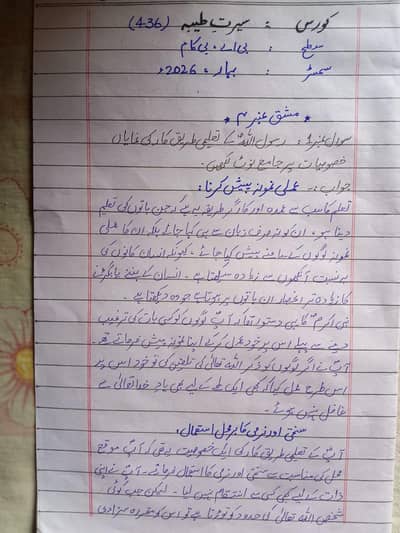 کورس : سیرتِ طیبہ (436)
سطح : بی اے، بی کام
سمسٹر : بہار، 2026ء
* مشق نمبر ۲ *
سوال نمبر 1: رسول اللہؐ کے تعلیمی طریق کار کی نمایاں
خصوصیات پر جامع نوٹ لکھیں۔
جواب:۔ عملی نمونہ پیش کرنا:
تعلیم کا سب سے عمدہ اور کارگر طریقہ یہ ہے کہ جن باتوں کی تعلیم
دینا ہو، ان کو نہ صرف زبان سے ہی کہا جائے بلکہ ان کا عملی
نمونہ لوگوں کے سامنے پیش کیا جائے، کیونکہ انسان کانوں کی
بہ نسبت آنکھوں سے زیادہ سیکھتا ہے۔ انسان کے بننے یا بگڑنے
کا زیادہ تر انحصار ان باتوں پر ہوتا ہے جو وہ دیکھتا ہے۔
نبی اکرمؐ کا یہی دستور تھا کہ آپؐ لوگوں کو کسی بات کی ترغیب
دینے سے پہلے اس پر خود عمل کر کے اپنا نمونہ پیش فرماتے تھے۔
آپؐ نے اگر لوگوں کو ذکر اللہ تعالیٰ کی تلقین کی تو خود اس پر
اس طرح عمل کیا کہ کبھی ایک لمحے کے لیے بھی یادِ خدا تعالیٰ سے
غافل نہیں ہوئے۔
سختی اور نرمی کا برمحل استعمال:
آپؐ کے تعلیمی طریق کار کی ایک خصوصیت یہ تھی کہ آپؐ موقع
محل کی مناسبت سے سختی اور نرمی کا استعمال فرماتے۔ آپؐ نے اپنی
ذات کے لیے کبھی کسی سے انتقام نہیں لیا۔ لیکن جب کوئی
شخص اللہ تعالیٰ کی حدود کو توڑتا ہے تو اس کو مقررہ سزا دی